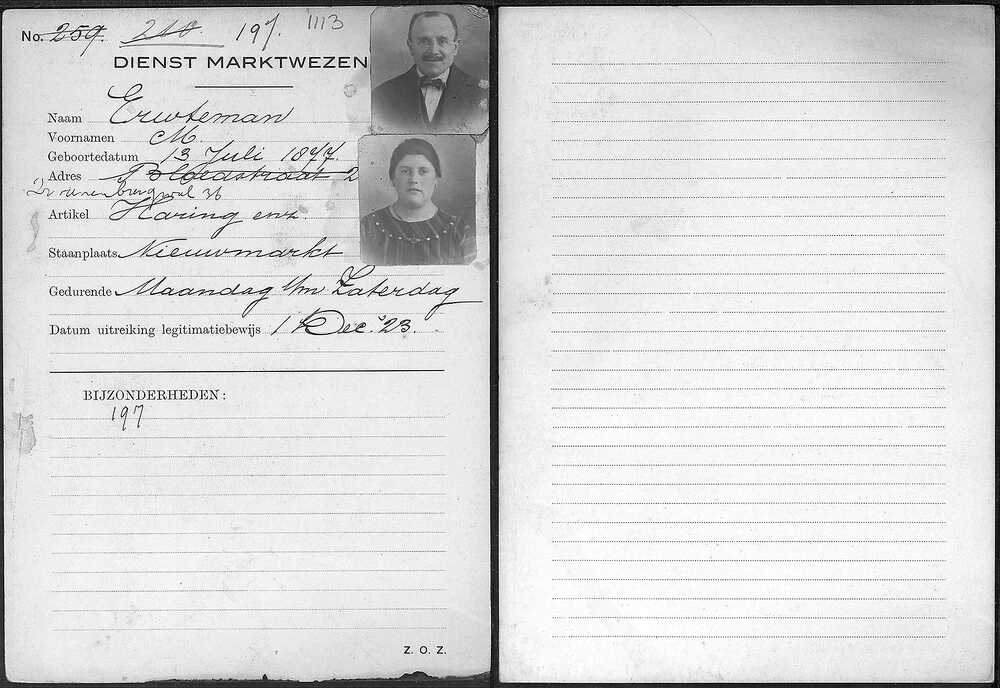 No. 259. 210. 197. 1113
DIENST MARKTWEZEN
Naam Erwteman
Voornamen M.
Geboortedatum 13 Juli 1877.
Adres Bloedstraat 2
burgwal 36
Artikel Haring enz.
Staanplaats Nieuwmarkt
Gedurende Maandag t/m Zaterdag
Datum uitreiking legitimatiebewijs 1 Dec. '23.
BIJZONDERHEDEN:
197
Z. O. Z.